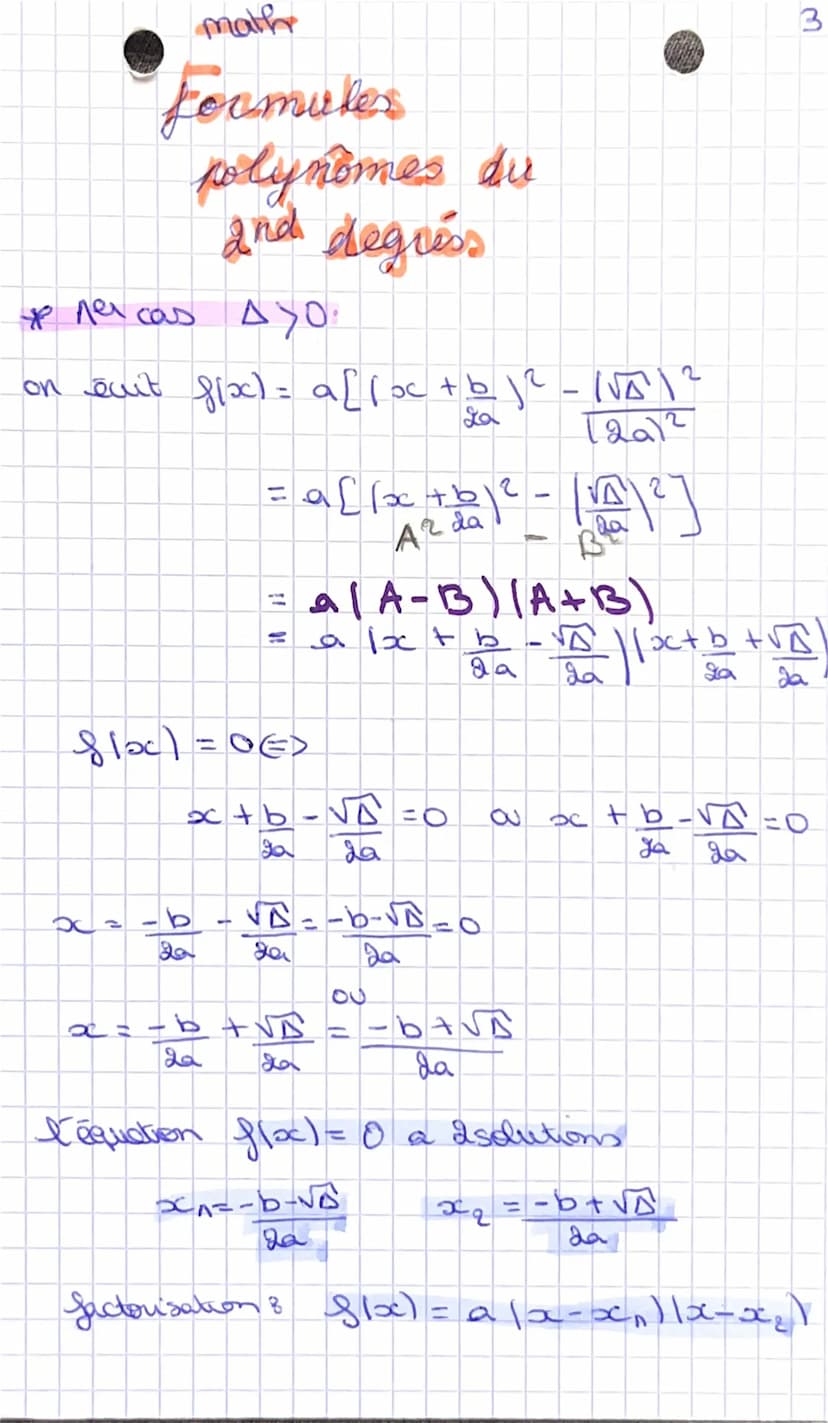 3
math
Formules
polynômes du
2nd degrés
* 1er cas Δ > 0.
on écrit f(x) = a[(x + b/2a)² - (√Δ)²/(2a)²
= a[(x + b/2a)² - (√Δ/2a)²]
A² - B²
= a(A-B)(A+B)
= a(x + b/2a - √Δ/2a)(x + b/2a + √Δ/2a)
f(x) = 0 <=>
x + b/2a - √Δ/2a = 0 ou x + b/2a - √Δ/2a = 0
x = -b/2a - √Δ/2a = -b-√Δ/2a = 0
ou
x = -b/2a + √Δ/2a = -b+√Δ/2a
l'équation f(x) = 0 a 2 solutions
x₁ = -b-√Δ/2a x₂ = -b+√Δ/2a
factorisation : f(x) = a(x-x₁)(x-x₂)